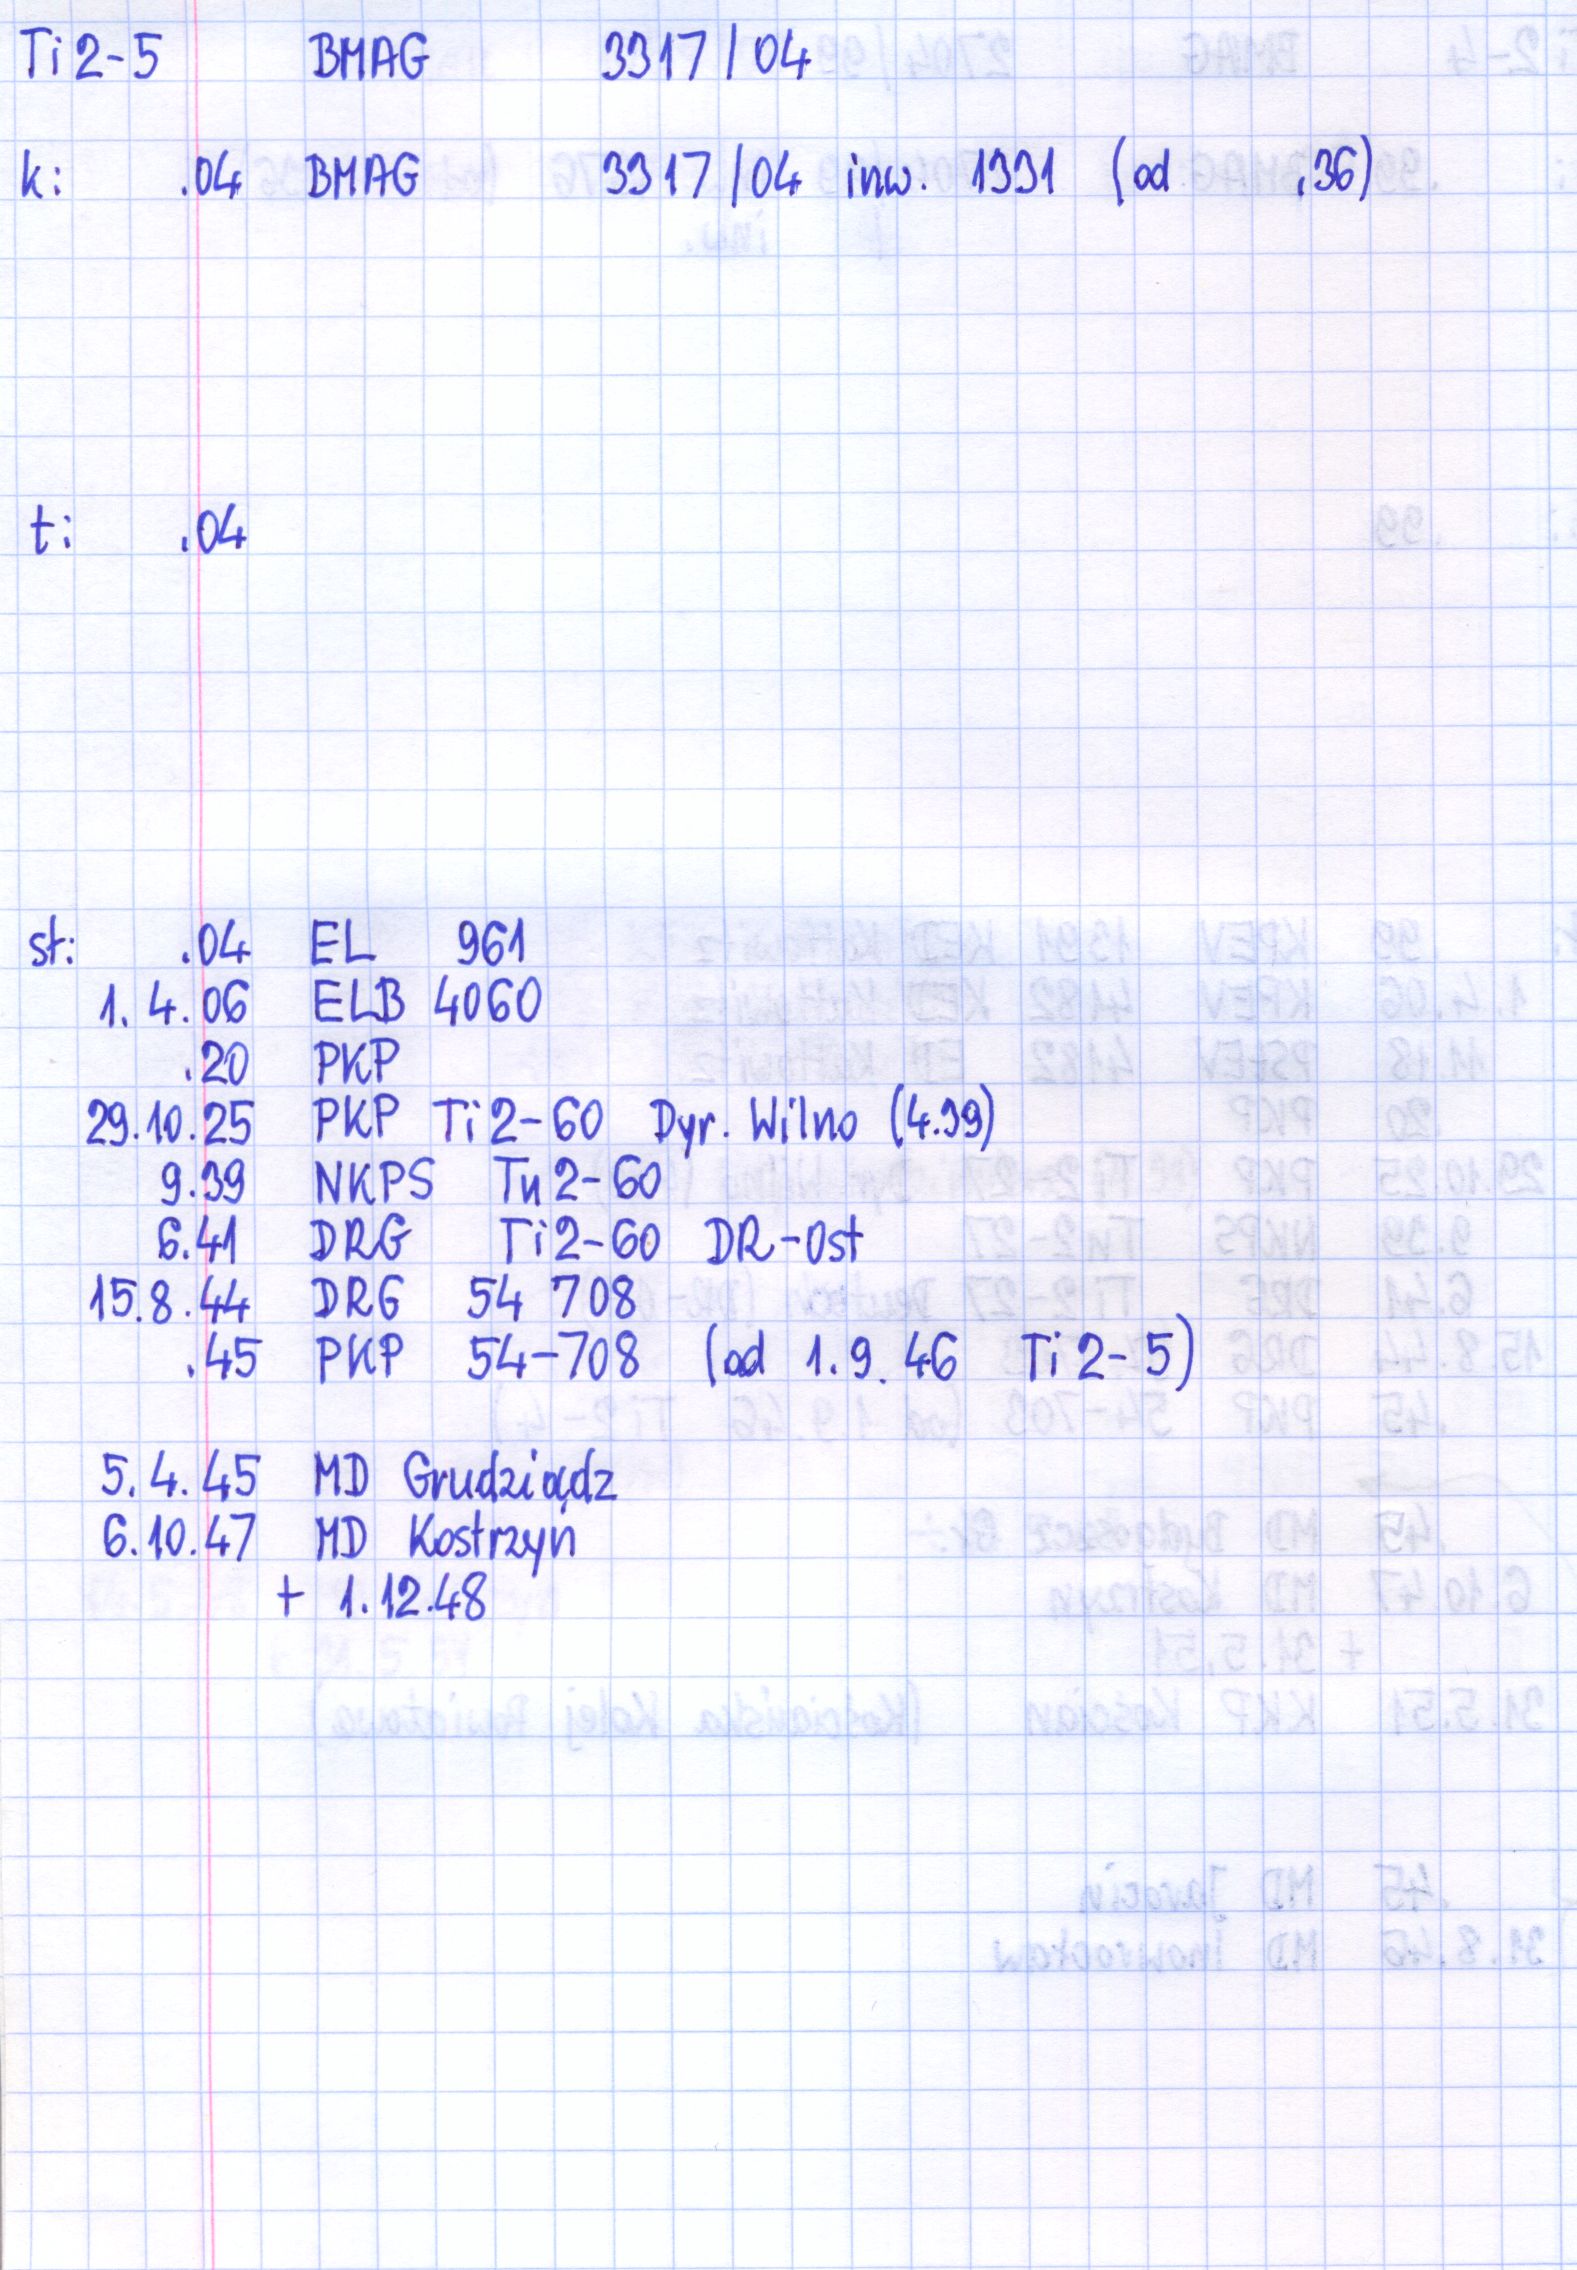 Ti2-5 BMAG 3317/04
k: .04 BMAG 3317/04 inw. 1331 (od .36)
t: .04
st: .04 EL 961
1.4.06 ELB 4060
.20 PKP
29.10.25 PKP Ti2-60 Dyr. Wilno (4.39)
9.39 NKPS Tu2-60
6.41 DRG Ti2-60 DR-Ost
15.8.44 DRG 54 708
.45 PKP 54-708 (od 1.9.46 Ti2-5)
5.4.45 MD Grudziądz
6.10.47 MD Kostrzyń
+ 1.12.48